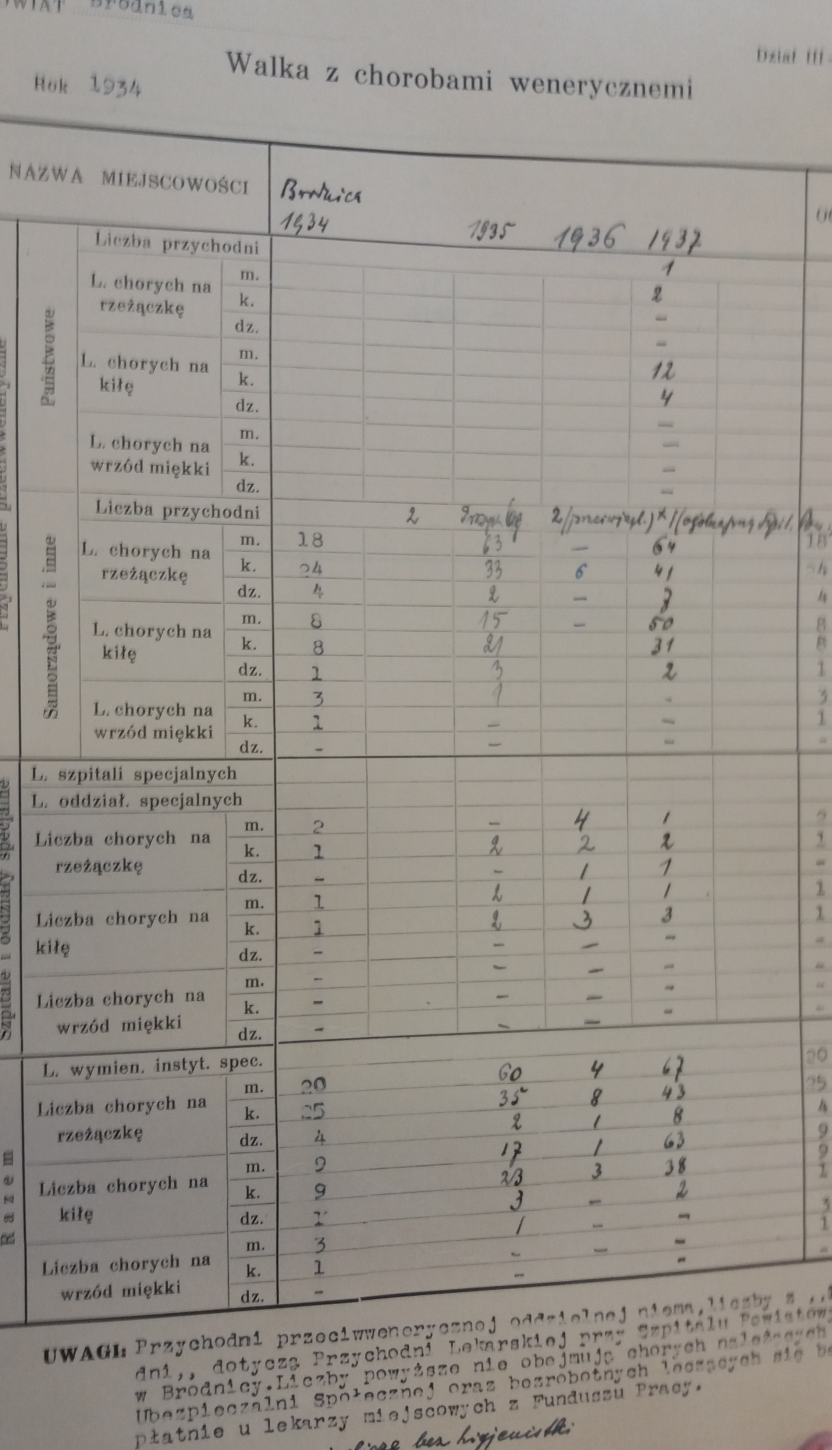 Brodnica
Dział III
Walka z chorobami wenerycznemi
Rok 1934
NAZWA MIEJSCOWOŚCI Brodnica
1934 1935 1936 1937
Przychodnie przeciwweneryczne
Państwowe
Liczba przychodni 1
L. chorych na rzeżączkę m. 2
k. –
dz. –
L. chorych na kiłę m. 12
k. 4
dz. –
L. chorych na wrzód miękki m. –
k. –
dz. –
Samorządowe i inne
Liczba przychodni 2 2
L. chorych na rzeżączkę m. 18 63 – 64 18
k. 24 33 6 41
dz. 4 2 – 7 4
L. chorych na kiłę m. 8 15 – 50 8
k. 8 21 31 8
dz. 1 3 2 1
L. chorych na wrzód miękki m. 3 1 - 3
k. 1 – – 1
dz. – – – –
Szpitale i oddziały specjalne
L. szpitali specjalnych
L. oddział. specjalnych
Liczba chorych na rzeżączkę m. 2 – 4 1 2
k. 1 2 2 2 1
dz. – – 1 1 –
Liczba chorych na kiłę m. 1 2 1 1 1
k. 1 2 3 3 1
dz. – – – – –
Liczba chorych na wrzód miękki m. – – – – –
k. – – – – –
dz. – – – –
Razem
L. wymien. instyt. spec.
Liczba chorych na rzeżączkę m. 20 60 4 67 20
k. 25 35 8 43 25
dz. 4 2 1 8 4
Liczba chorych na kiłę m. 9 17 1 63 9
k. 9 23 3 38 9
dz. 1 3 – 2 1
Liczba chorych na wrzód miękki m. 3 1 – – 3
k. 1 – – – 1
dz. – – –
UWAGI: Przychodni przeciwwenerycznej oddzielnej niema, liczby z
dni,, dotyczą Przychodni Lekarskiej przy Szpitalu Powiatow
w Brodnicy. Liczby powyższe nie obejmują chorych należących
Ubezpieczalni Społecznej oraz bezrobotnych leczących się be
płatnie u lekarzy miejscowych z Funduszu Pracy.
bez higjenistki